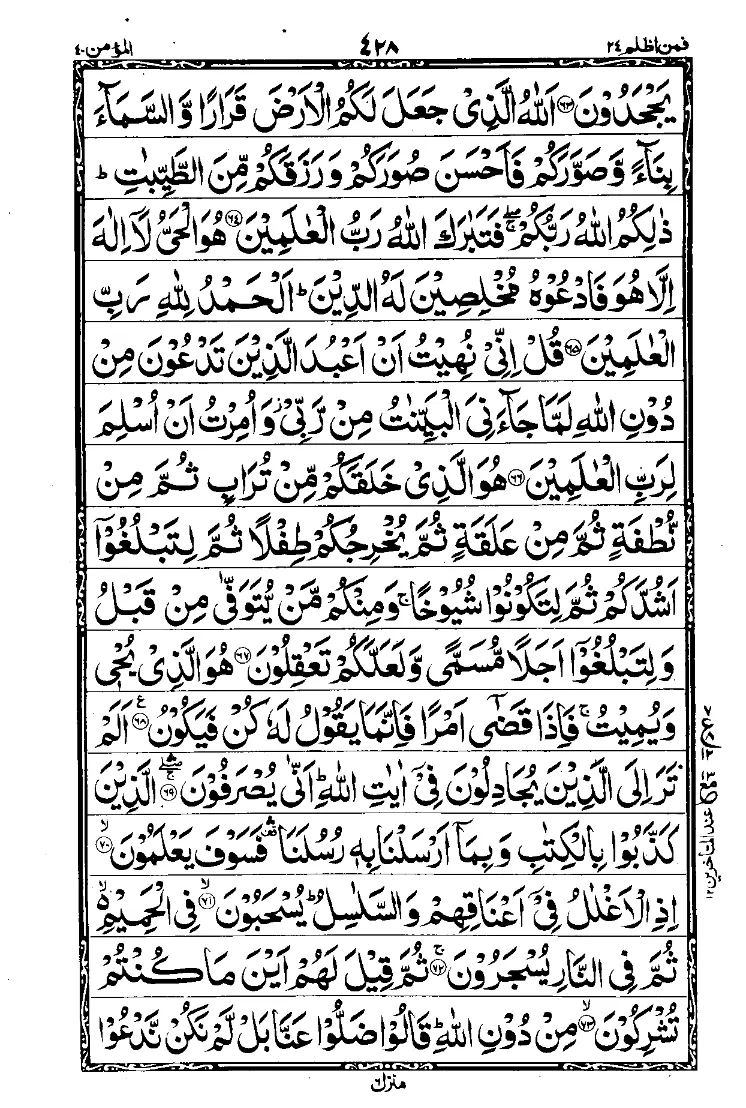 فمن اظلم ٢٤
٤٢٨
المؤمن ٤٠
يَجْحَدُوْنَ ﴿٦٣﴾ اَللّٰهُ الَّذِىْ جَعَلَ لَكُمُ الْاَرْضَ قَرَارًا وَّ السَّمَآءَ
بِنَآءً وَّ صَوَّرَكُمْ فَاَحْسَنَ صُوَرَكُمْ وَ رَزَقَكُمْ مِّنَ الطَّيِّبٰتِ ؕ
ذٰلِكُمُ اللّٰهُ رَبُّكُمْ ۖۚ فَتَبٰرَكَ اللّٰهُ رَبُّ الْعٰلَمِيْنَ ﴿٦٤﴾ هُوَ الْحَىُّ لَاۤ اِلٰهَ
اِلَّا هُوَ فَادْعُوْهُ مُخْلِصِيْنَ لَهُ الدِّيْنَ ؕ اَلْحَمْدُ لِلّٰهِ رَبِّ
الْعٰلَمِيْنَ ﴿٦٥﴾ قُلْ اِنِّىْ نُهِيْتُ اَنْ اَعْبُدَ الَّذِيْنَ تَدْعُوْنَ مِنْ
دُوْنِ اللّٰهِ لَمَّا جَآءَنِىَ الْبَيِّنٰتُ مِنْ رَّبِّىْ وَ اُمِرْتُ اَنْ اُسْلِمَ
لِرَبِّ الْعٰلَمِيْنَ ﴿٦٦﴾ هُوَ الَّذِىْ خَلَقَكُمْ مِّنْ تُرَابٍ ثُمَّ مِنْ
نُّطْفَةٍ ثُمَّ مِنْ عَلَقَةٍ ثُمَّ يُخْرِجُكُمْ طِفْلًا ثُمَّ لِتَبْلُغُوْۤا
اَشُدَّكُمْ ثُمَّ لِتَكُوْنُوْا شُيُوْخًا ۚ وَمِنْكُمْ مَّنْ يُّتَوَفّٰى مِنْ قَبْلُ
وَ لِتَبْلُغُوْۤا اَجَلًا مُّسَمًّى وَّ لَعَلَّكُمْ تَعْقِلُوْنَ ﴿٦٧﴾ هُوَ الَّذِىْ يُحْىٖ
وَ يُمِيْتُ ۚ فَاِذَا قَضٰٓى اَمْرًا فَاِنَّمَا يَقُوْلُ لَهٗ كُنْ فَيَكُوْنُ ﴿٦٨﴾ ع اَلَمْ
تَرَ اِلَى الَّذِيْنَ يُجَادِلُوْنَ فِىْۤ اٰيٰتِ اللّٰهِ ؕ اَنّٰى يُصْرَفُوْنَ ﴿٦٩﴾ ۛۖۚ الَّذِيْنَ
كَذَّبُوْا بِالْكِتٰبِ وَ بِمَاۤ اَرْسَلْنَا بِهٖ رُسُلَنَا ۛ فَسَوْفَ يَعْلَمُوْنَ ﴿٧٠﴾ ۙ
اِذِ الْاَغْلٰلُ فِىْۤ اَعْنَاقِهِمْ وَ السَّلٰسِلُ ؕ يُسْحَبُوْنَ ﴿٧١﴾ ۙ فِى الْحَمِيْمِ ۙ
ثُمَّ فِى النَّارِ يُسْجَرُوْنَ ﴿٧٢﴾ ۚ ثُمَّ قِيْلَ لَهُمْ اَيْنَ مَا كُنْتُمْ
تُشْرِكُوْنَ ﴿٧٣﴾ ۙ مِنْ دُوْنِ اللّٰهِ ؕ قَالُوْا ضَلُّوْا عَنَّا بَلْ لَّمْ نَكُنْ نَّدْعُوْا
عند المتاخرین ١٢
منزل ٦